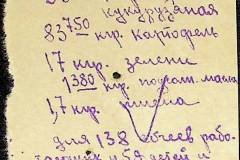 кукурузная
83750 кгр. картофель
17 кгр. зелени
1380 кгр. подсол. масла
1,7 кгр. пшена
для 138 рабо-
59 детей и